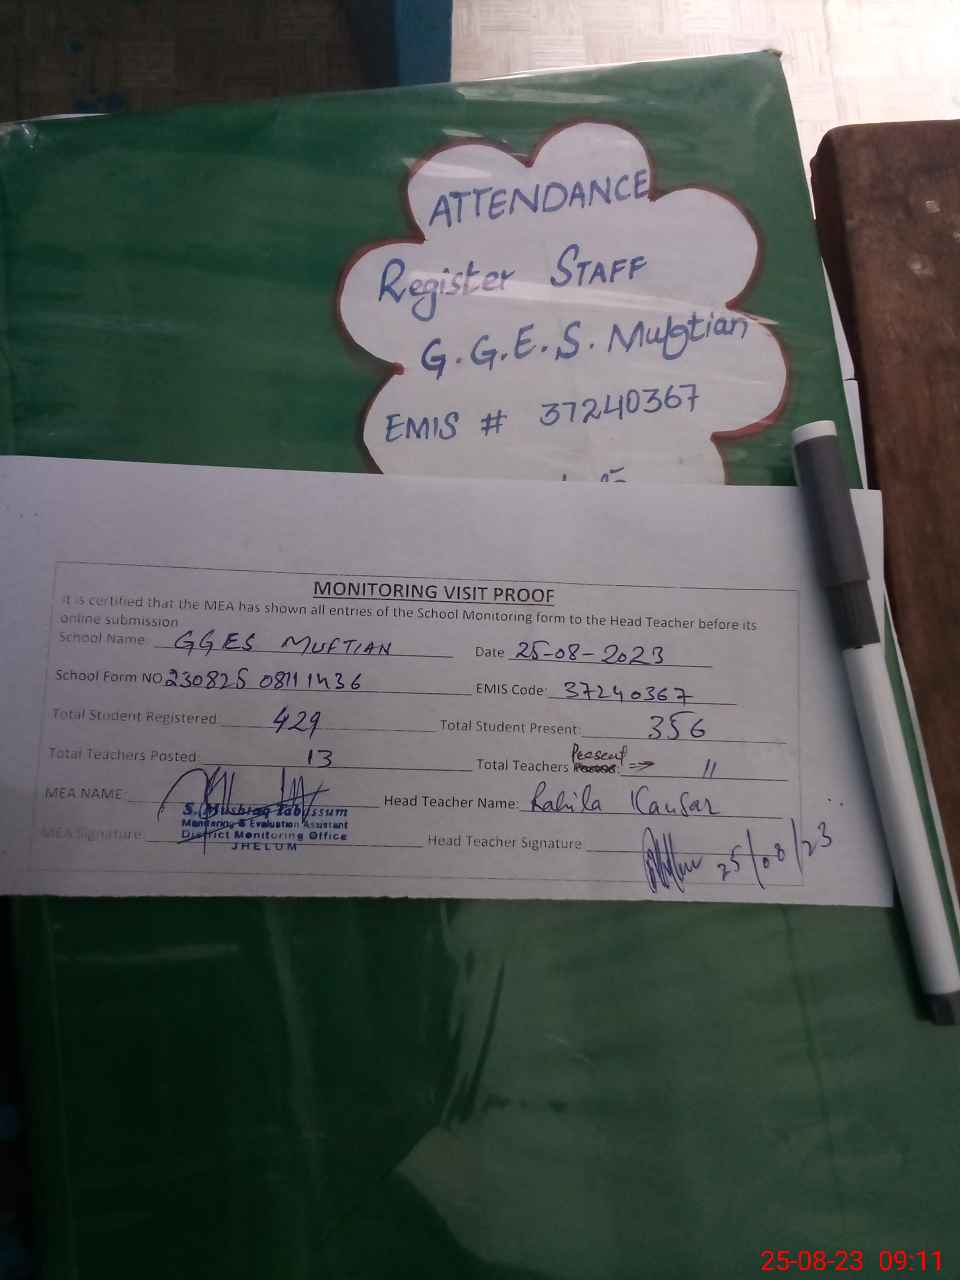 ATTENDANCE
Register STAFF
G.G.E.S. Muftian
EMIS # 37240367
MONITORING VISIT PROOF
It is certified that the MEA has shown all entries of the School Monitoring form to the Head Teacher before its
online submission
School Name: GGES MUFTIAN Date 25-08-2023
School Form NO. 230825 08111436 EMIS Code: 37240367
Total Student Registered: 429 Total Student Present: 356
Total Teachers Posted: 13 Total Teachers Present => 11
MEA NAME: Head Teacher Name: Rahila Kausar
S. Mushtaq Tabassum
Monitoring & Evaluation Assistant
District Monitoring Office
JHELUM
MEA Signature: Head Teacher Signature:
25/08/23
25-08-23 09:11